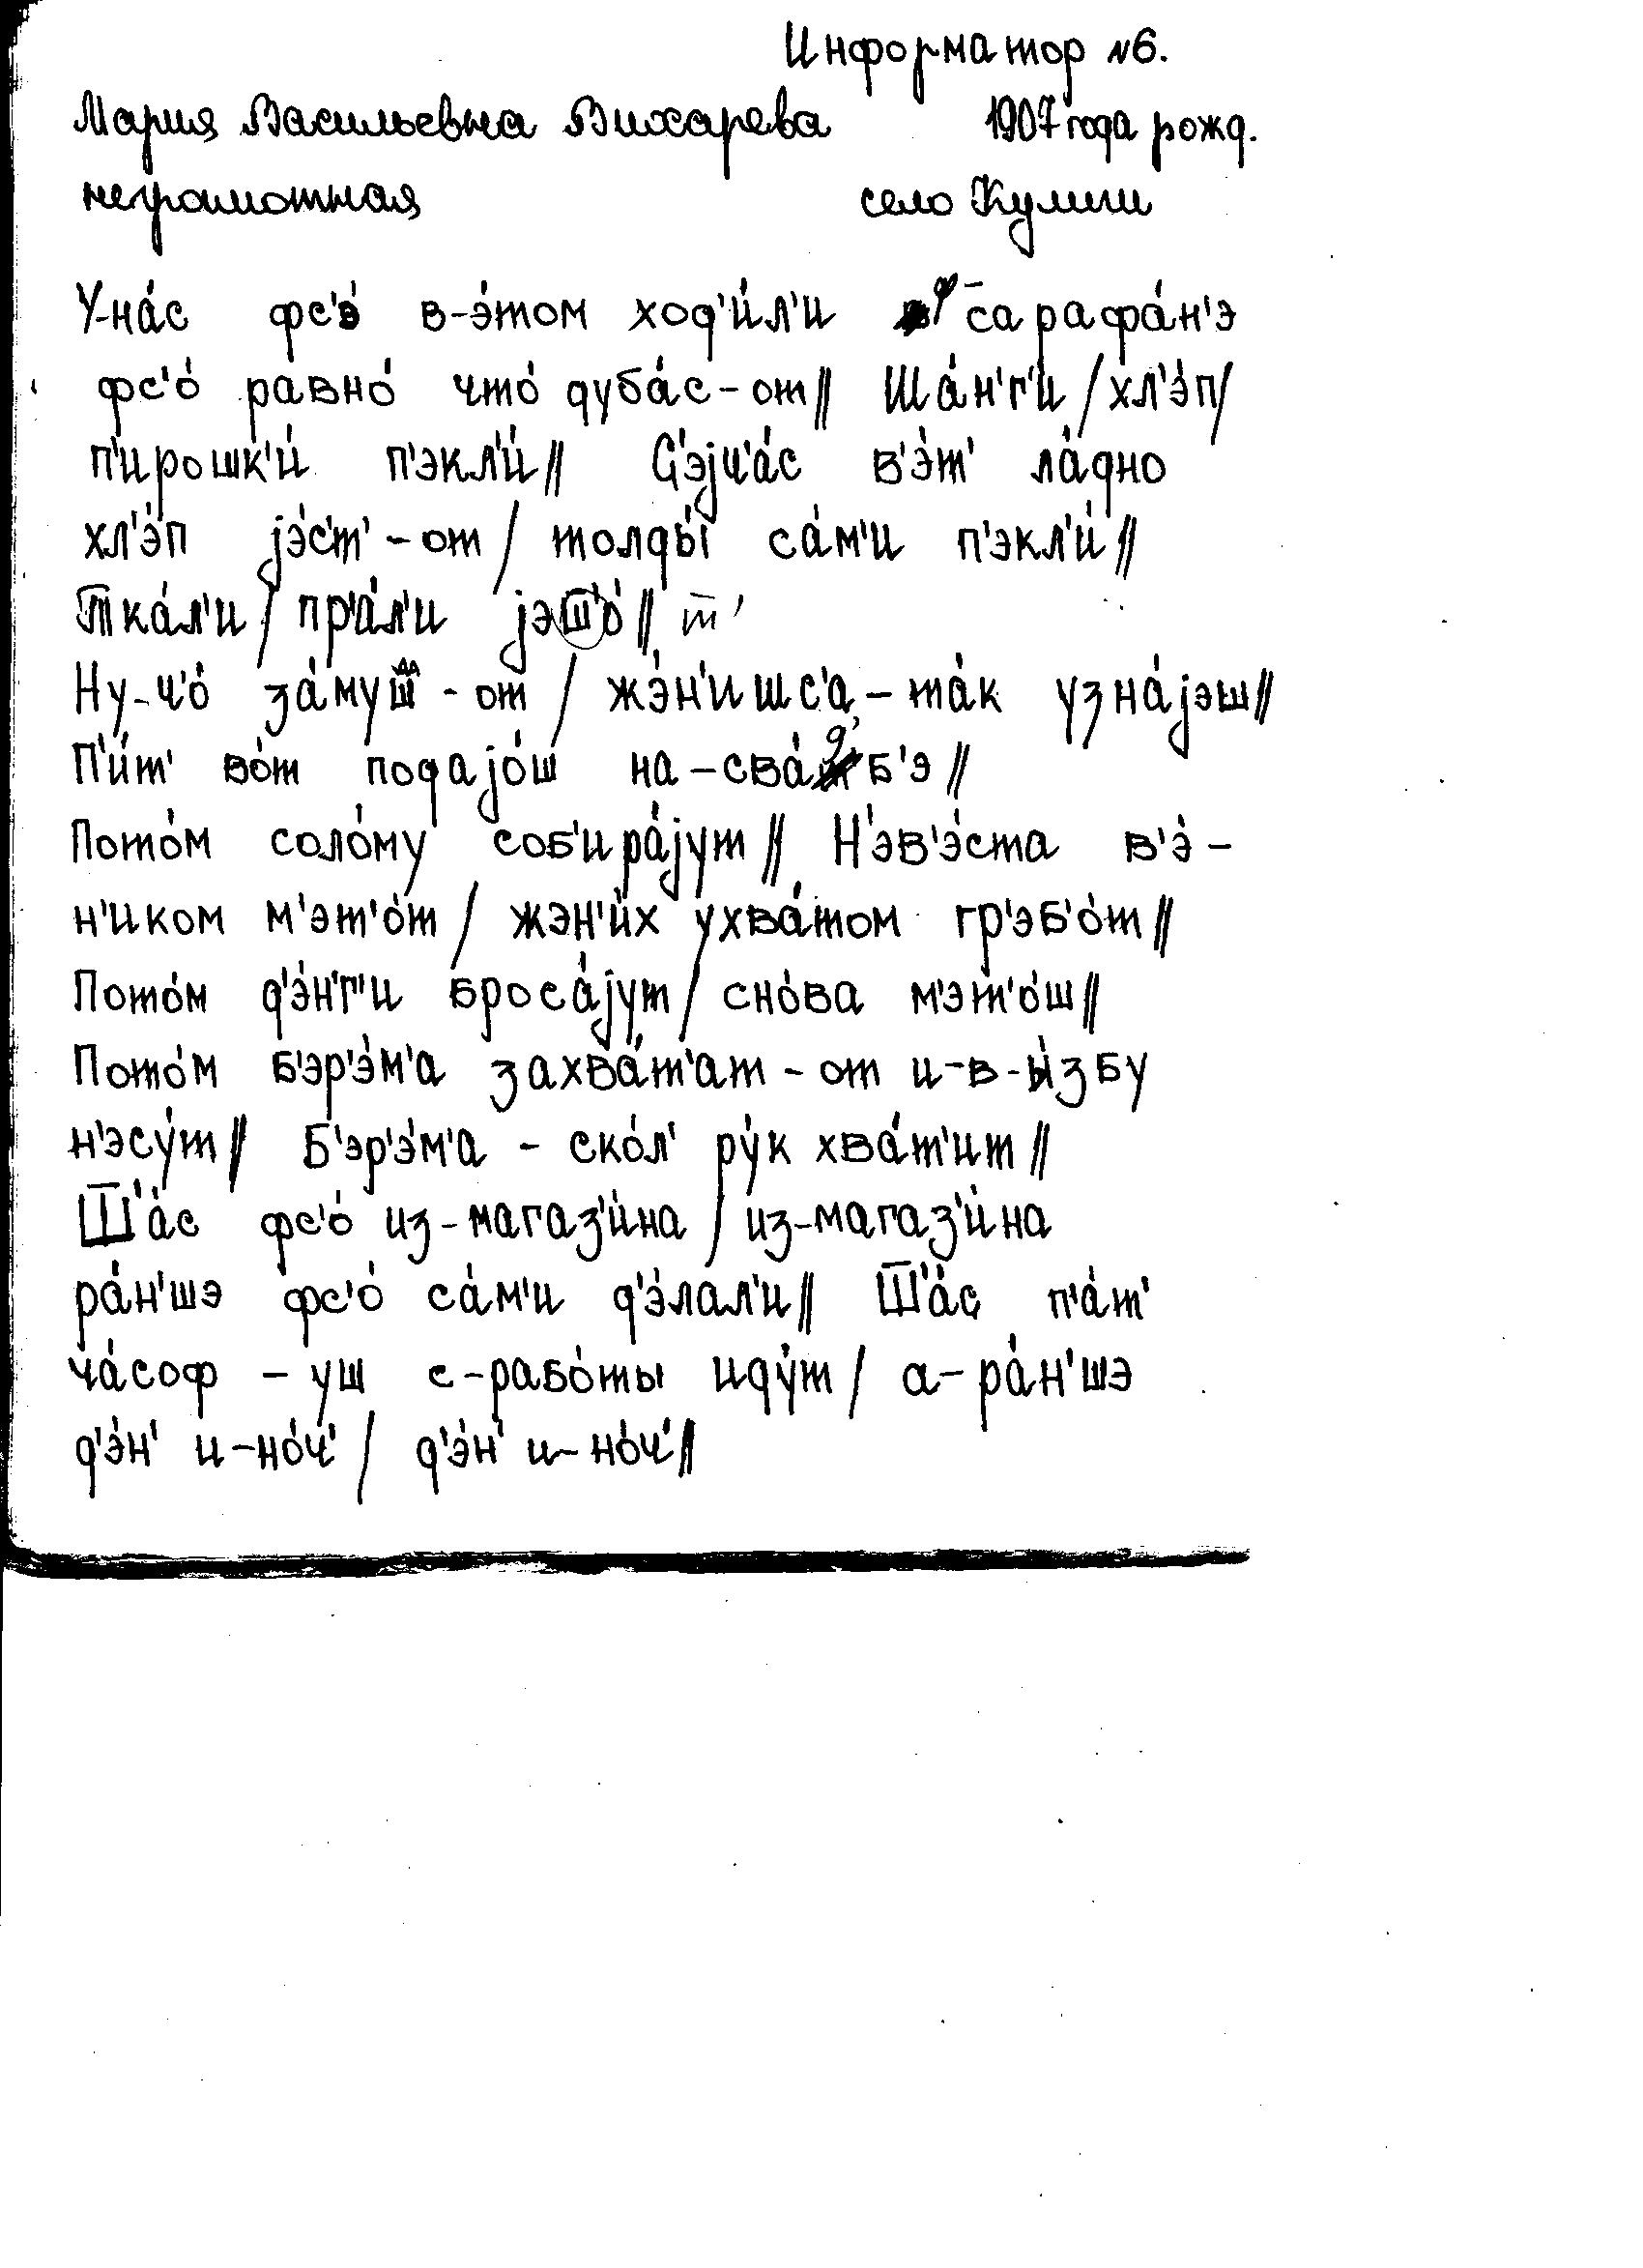 Информатор №6.
Мария Васильевна Вихарева 1907 года рожд.
неграмотная село Кулиги
У-на́с фс'э́ в-э́том ход'и́л'и ф с̄арафа́н'э
фс'о́ равно́ что́ дуба́с-от// Ша́н'г'и/хл'э́п/
п'ирошк'и́ п'экл'и́// С'эjч'а́с в'э́т' ла́дно
хл'э́п jэ́с'т'-от/ толды́ са́м'и п'экл'и́//
Тка́л'и/ пр'а́л'и jэш̄'о́// ш̄'
Ну-ч'о́ за́муш-от/ жэ́н'ишс'а,-та́к узна́jэш//
П'и́т' во́т подаjо́ш на-сва́д'б'э//
Пото́м соло́му соб'ира́jут// Н'эв'э́ста в'э́-
н'иком м'эт'о́т/ жэн'и́х ухва́том гр'эб'о́т//
Пото́м д'э́н'г'и броса́jут/ сно́ва м'эт'о́ш//
Пото́м б'эр'э́м'а захва́т'ат-от и-в-ы́збу
н'эсу́т// Б'эр'э́м'а - ско́л' ру́к хва́т'ит//
Ш̄'а́с фс'о́ из-магаз'и́на/ из-магаз'и́на
ра́н'шэ фс'о́ са́м'и д'э́лал'и// Ш̄'а́с п'а́т'
ча́соф - уш с-рабо́ты иду́т/ а-ра́н'шэ
д'э́н' и-но́ч'/ д'э́н' и-но́ч'//